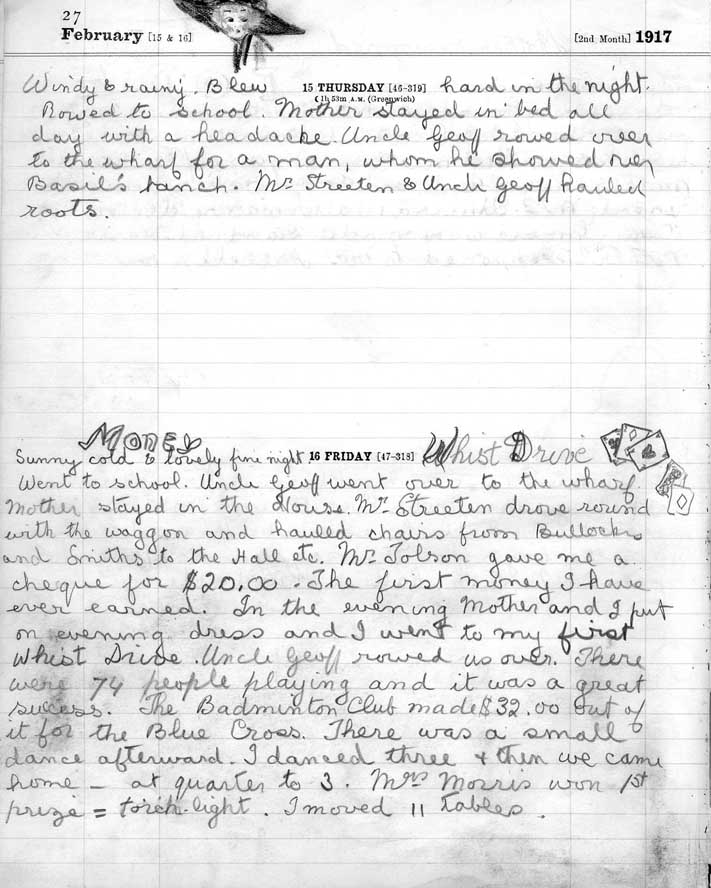 27
February [15 & 16]
[2nd Month] 1917
Windy & rainy. Blew 15 THURSDAY [46-319] hard in the night.
☾ 1h 53m A.M. (Greenwich)
Rowed to school. Mother stayed in bed all
day with a headache. Uncle Geoff rowed over
to the wharf for a man, whom he showed over
Basil's ranch. Mr. Streeten & Uncle Geoff hauled
roots.
Money
Whist Drive
Sunny cold & lovely fine night. 16 FRIDAY [47-318]
Went to school. Uncle Geoff went over to the wharf
Mother stayed in the House. Mr. Streeten drove round
with the waggon and hauled chairs from Bullocks
and Smiths to the Hall etc. Mr. Tolson gave me a
cheque for $20.00. The first money I have
ever earned. In the evening Mother and I put
on evening dress and I went to my first
Whist Drive. Uncle Geoff rowed us over. There
were 74 people playing and it was a great
success. The Badminton Club made $32.00 out of
it for the Blue Cross. There was a small
dance afterward. I danced three & then we came
home - at quarter to 3. Mrs Morris won 1st
prize = torch-light. I moved 11 tables.